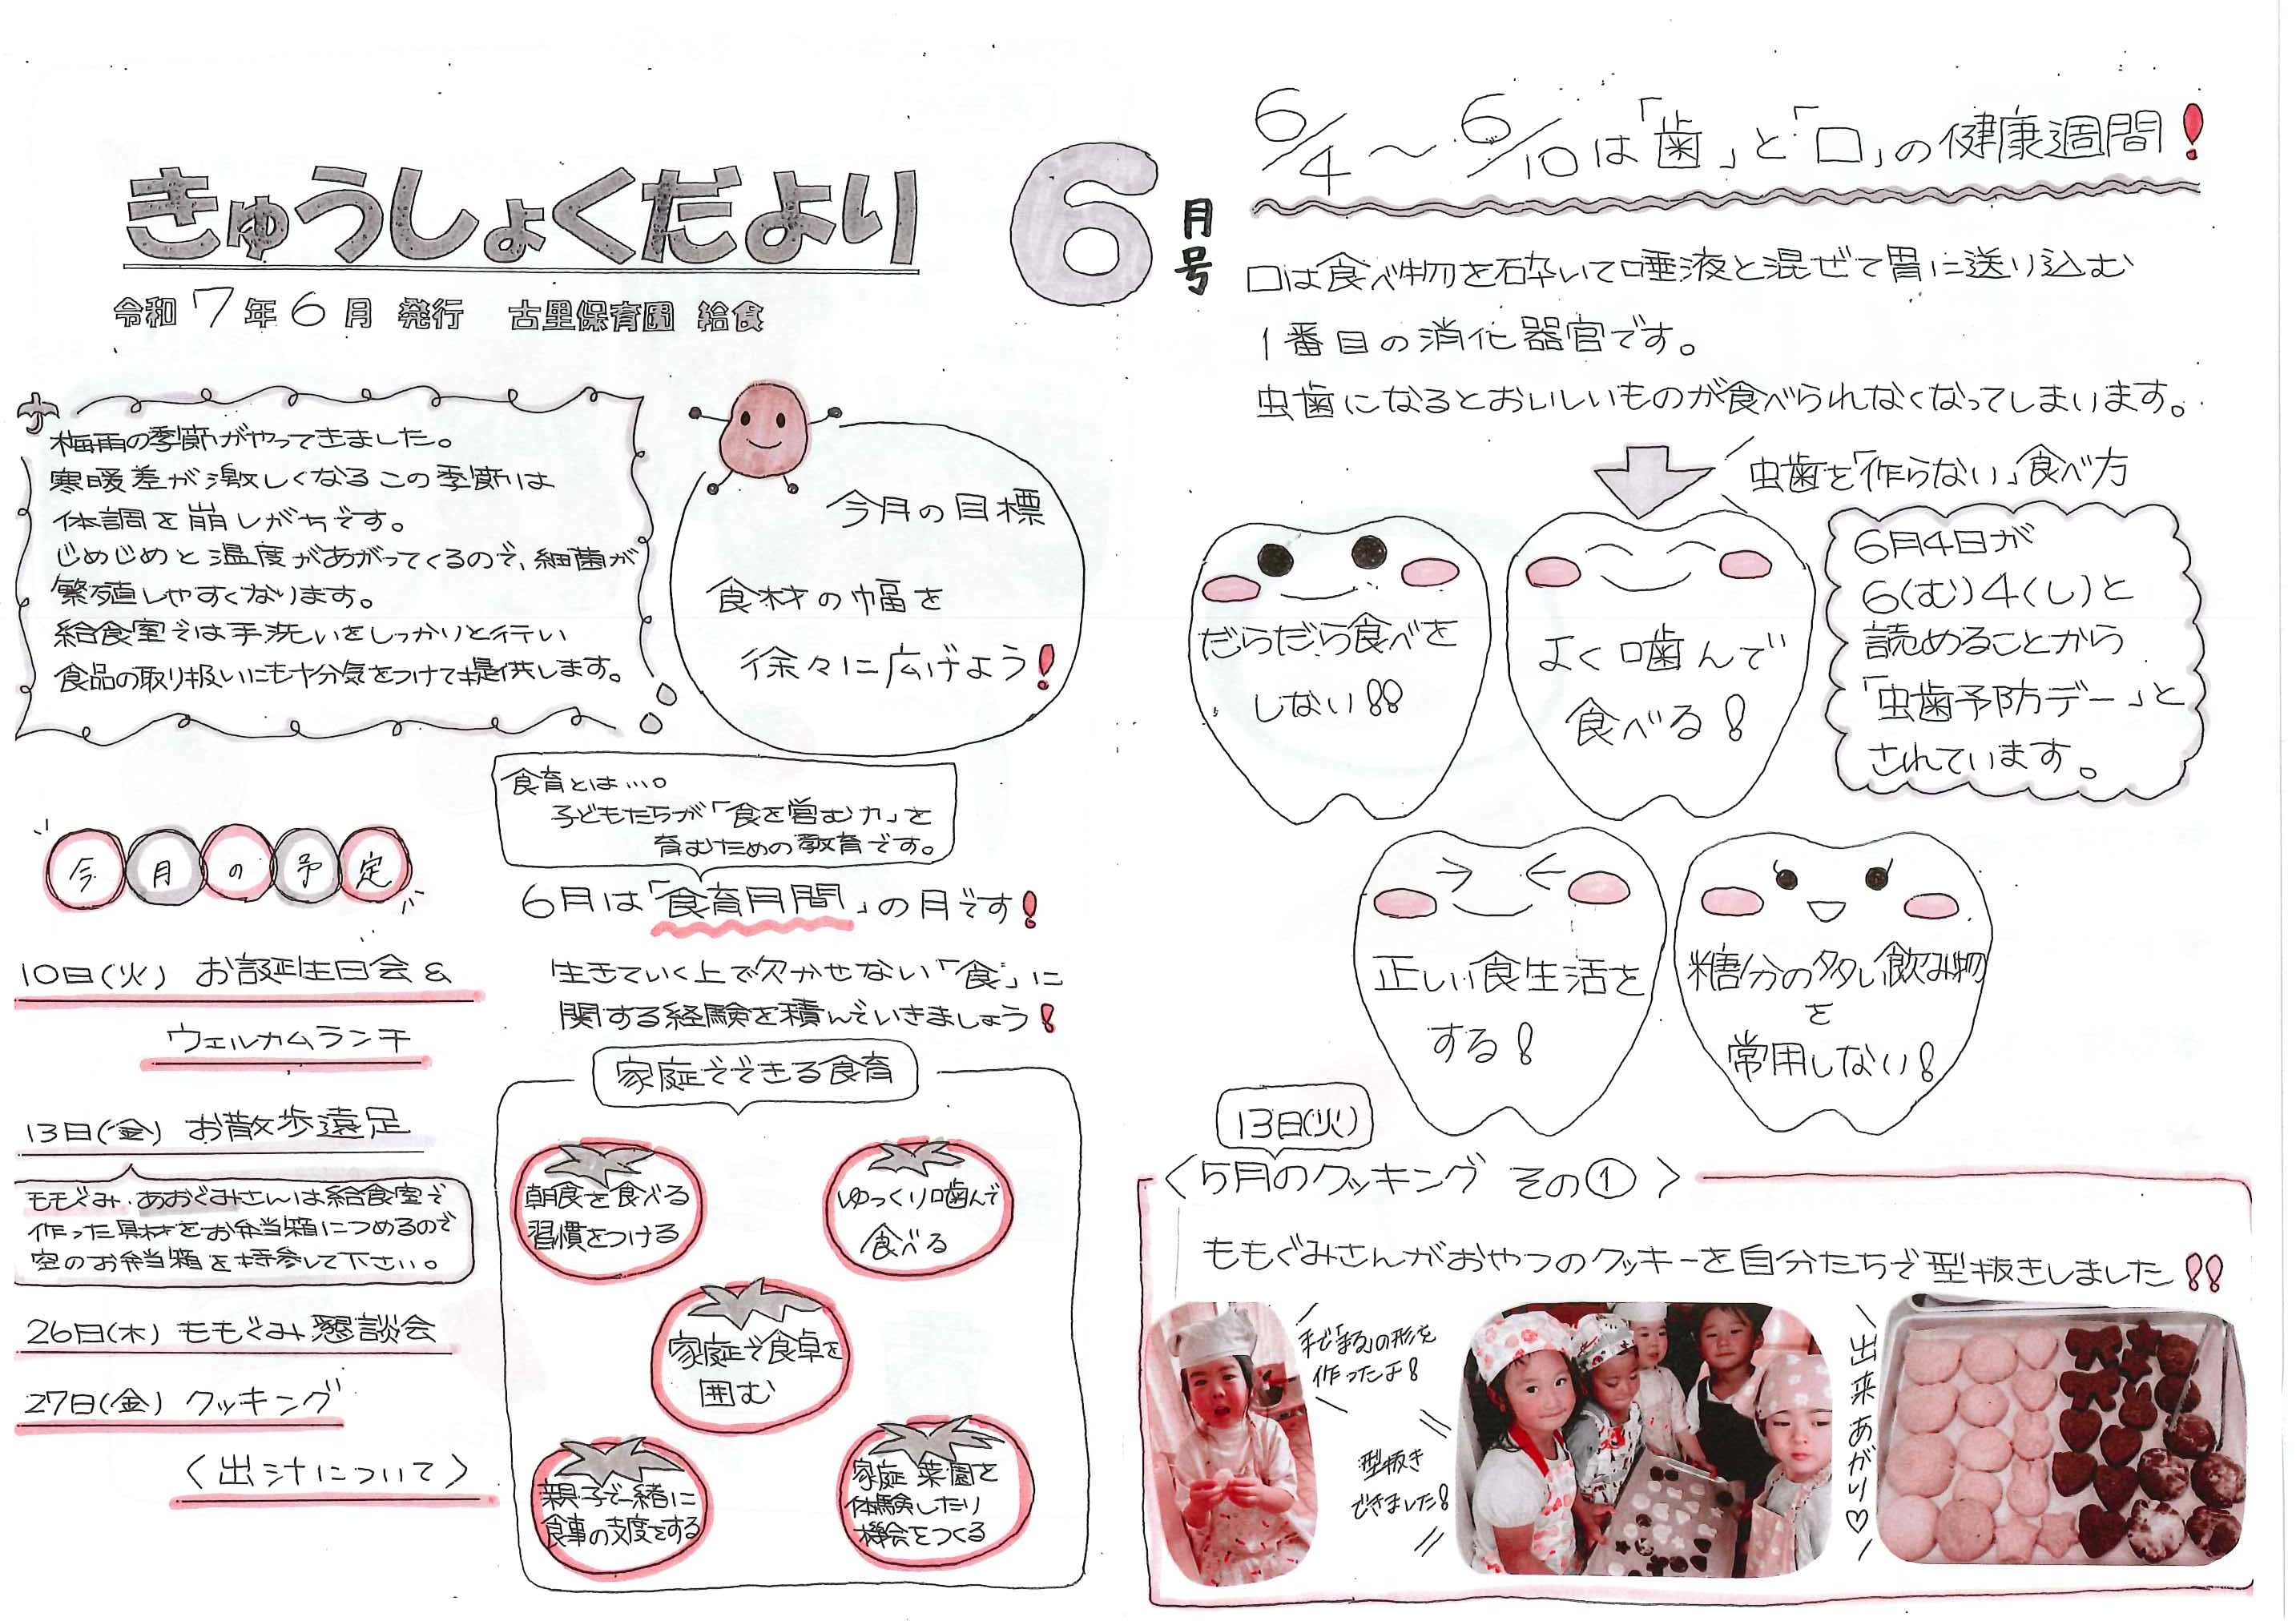 きゅうしょくだより
6月号
令和7年6月 発行 古里保育園 給食
梅雨の季節がやってきました。
寒暖差が激しくなるこの季節は
体調を崩しがちです。
じめじめと温度があがってくるので、細菌が
繁殖しやすくなります。
給食室では手洗いをしっかりと行い
食品の取り扱いにも十分気をつけて提供します。
今月の目標
食材の幅を
徐々に広げよう!
今月の予定
10日(火) お誕生日会&
ウェルカムランチ
13日(金) お散歩遠足
ももぐみ・あおぐみさんは給食室で
作った具材をお弁当箱につめるので
空のお弁当箱を持参して下さい。
26日(木) ももぐみ懇談会
27日(金) クッキング
〈出汁について〉
食育とは…。
子どもたちが「食を営む力」を
育むための教育です。
6月は「食育月間」の月です!
生きていく上で欠かせない「食」に
関する経験を積んでいきましょう!
家庭でできる食育
朝食を食べる
習慣をつける
ゆっくり噛んで
食べる
家庭で食卓を
囲む
親子で一緒に
食事の支度をする
家庭菜園を
体験したり
機会をつくる
6/4〜6/10は「歯」と「口」の健康週間!
口は食べ物を砕いて唾液と混ぜて胃に送り込む
1番目の消化器官です。
虫歯になるとおいしいものが食べられなくなってしまいます。
虫歯を「作らない」食べ方
だらだら食べを
しない!!
よく噛んで
食べる!
6月4日が
6(む)4(し)と
読めることから
「虫歯予防デー」と
されています。
正しい食生活を
する!
糖分の多い飲み物
を
常用しない!
13日(火)
〈5月のクッキング その①〉
ももぐみさんがおやつのクッキーを自分たちで型抜きしました!!
手で「まる」の形を
作ったよ!
型抜き
できました!
出来あがり♡